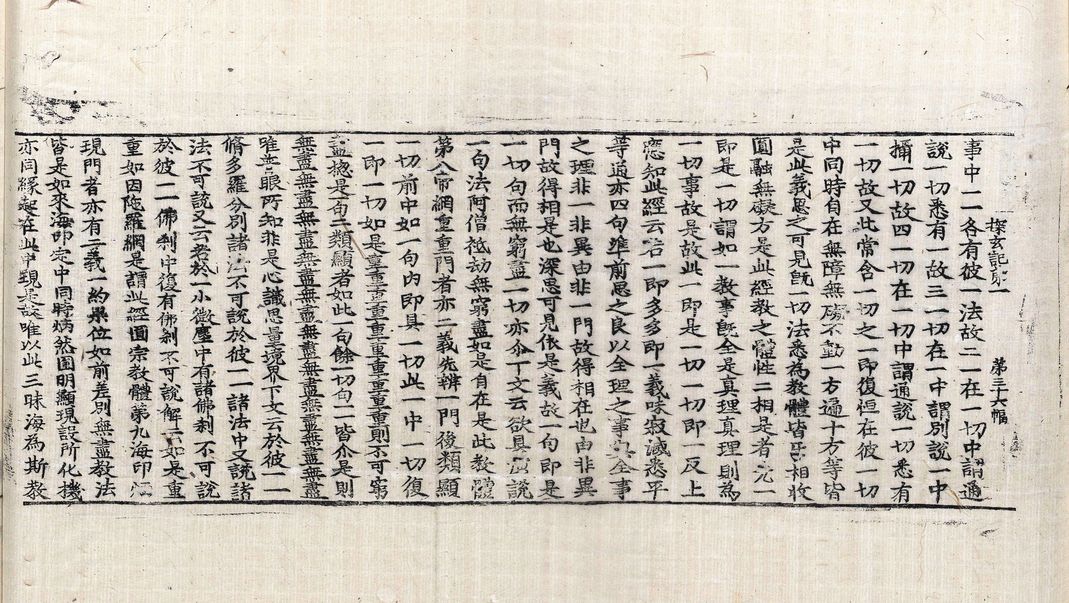 探玄記苐一 苐三十六幅
事中一一各有彼一法故二一在一切中謂通
說一切悉有一故三一切在一中謂別說一中
攝一切故四一切在一切中謂通說一切悉有
一切故又此常含一切之一即復恒在彼一切
中同時自在無障無礙不動一方遍十方等皆
是此義思之可見旣一切法悉為教體皆互相收
圓融無礙方是此經教之體性二相是者先一
即是一切謂如一教事旣全是真理真理則為
一切事故是故此一即是一切一切即一反上
應知此經云若一即多多即一義味寂滅悉平
等過亦四句準前思之良以全理之事與全事
之理非一非異由非一門故得相在也由非異
門故得相是也深思可見依是義故一句即是
一切句而無窮盡一切亦尒下文云欲具演說
一句法阿僧祇劫無窮盡如是自在是此教體
第八帝網重重門者亦二義先辨一門後類顯
一切前中如一句內即具一切此一中一切復
一即一切如是重重重重重重重重重則不可窮
盡揔是一句二類顯者如此一句餘一切句一一皆尒是則
無盡無盡無盡無盡無盡無盡無盡無盡無盡
唯普眼所知非是心識思量境界下文云於彼一一
脩多羅分別諸法不可說於彼一一諸法中又說諸
法不可說又云若於一小微塵中有諸佛剎不可說
於彼一一佛剎中復有佛剎不可說解云如是重
重如因陁羅網是謂此經圓宗教體第九海印炳
現門者亦有二義一約果位如前差別無盡教法
皆是如來海印定中同時炳然圓明顯現設所化機
亦同緣起在此中現是故唯以此三昧海為斯教